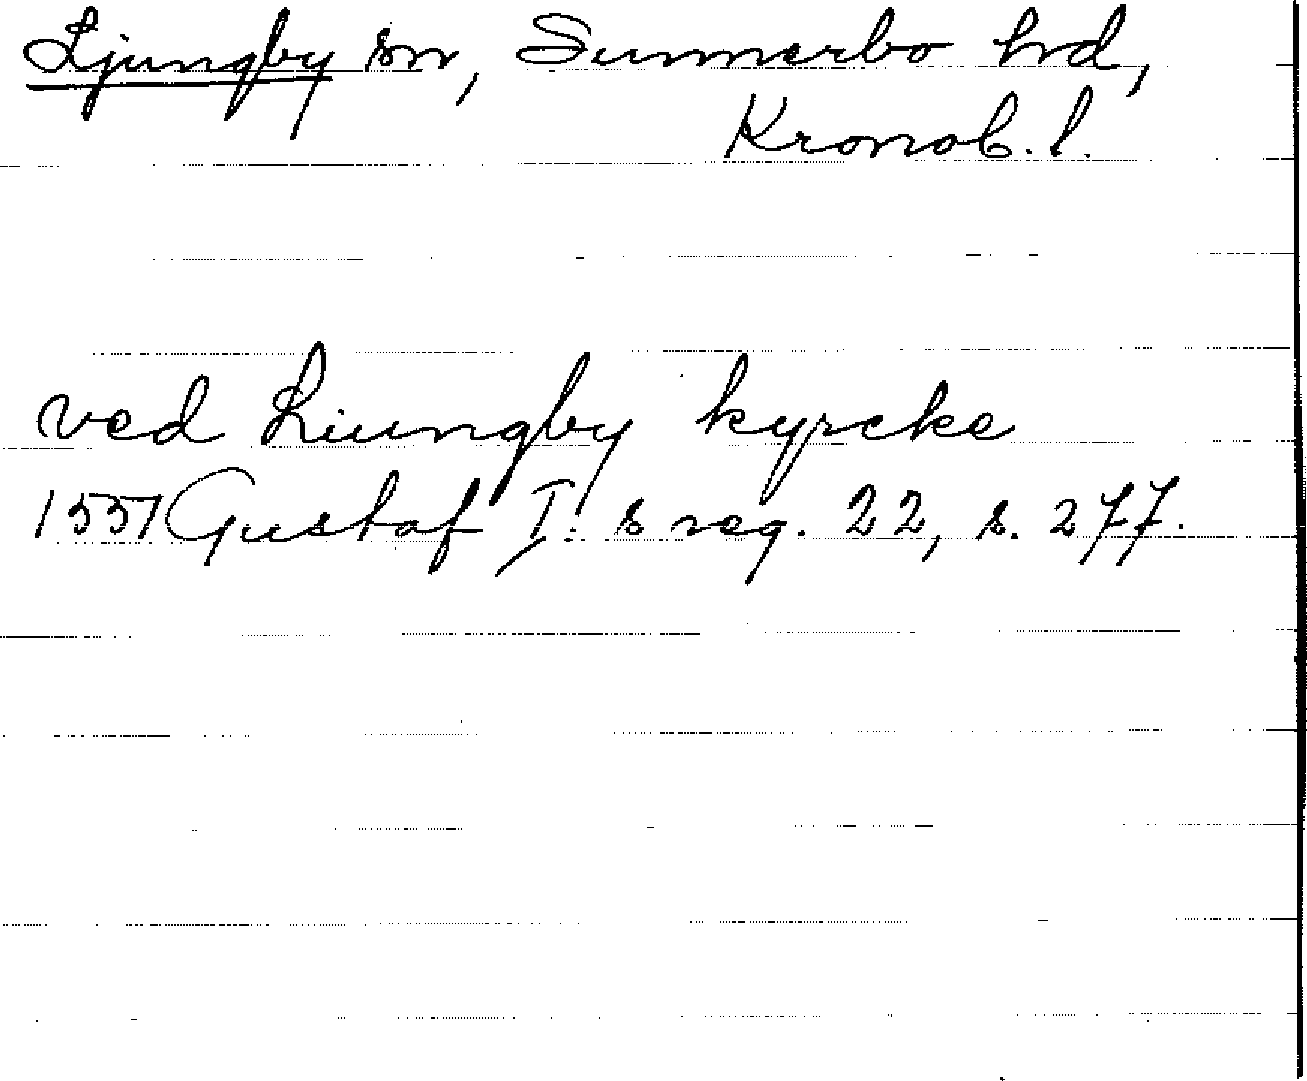 Ljungby sn, Sunnerbo hd,
Kronob. l.
ved Liungby kyrcke
1551 Gustaf I:s reg. 22, s. 277.